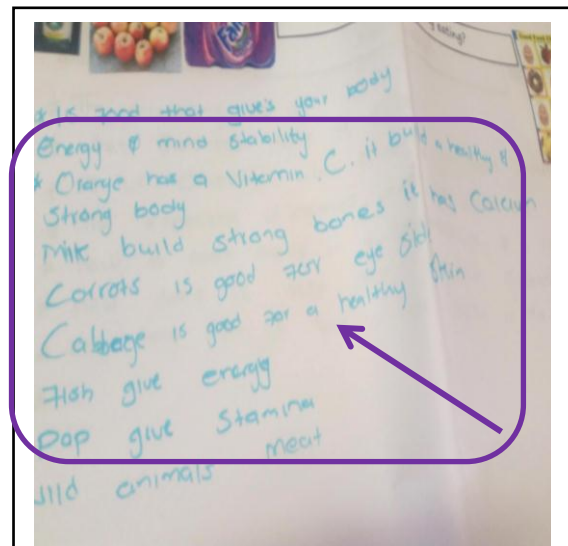 Fanta
g eating?
* Is food that give's your body
Energy & mind stability
* Orange has a Vitamin C. it build a healthy &
Strong body
Milk build strong bones it has Calcium
Corrots is good for eye side
Cabbage is good for a healthy skin
Fish give energy
Pap give Stamina
wild animals meat